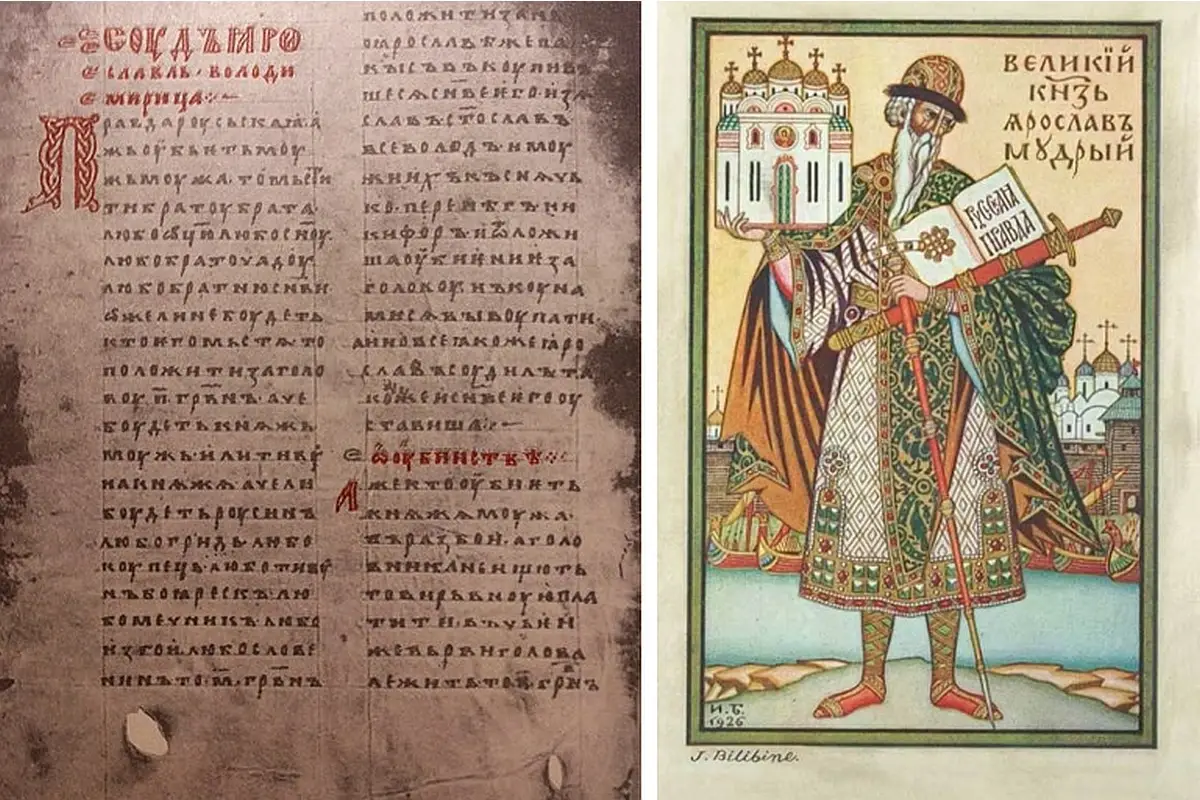 СОУДЪ ꙖРО
СЛАВЛЬ · ВОЛОДИ
МИРИЦА:·
Правда роусьскаꙗ · а
жь оубьить моу
жь моужа · то мьсти
ти братоу брата ·
любо ѡцю любо сн҃оу ·
любо братоучадоу ·
любо братню сн҃ви
ѡже ли не боудеть
кто иго мьстѧ то
положити за голо
воу · п҃ · грвн҃ъ · аче
боудеть кнѧжь
моужь · или тиву
на кнѧжа · аче ли
боудеть роусинъ ·
любо гридь · любо
коупець · любо тиву
нъ боꙗрескъ · лю
бо мечникъ · любо
изгои · любо слове
нинъ то · м҃ · грвн҃ъ
положити за нь
по ꙗрославѣ же па
кы съвъкоупивъ
шесѧ сн҃ве иго · изѧ
славъ · ст҃ославъ
всеволодъ · и моу
жи ихъ къснѧчь
ко · перенѣгъ · ни
кифоръ · и ѿложи
ша оубиѥниѥ за
головоу · нъ коуна
ми сѧ выкоупати ·
а ино все ꙗкоже ꙗро
славъ соудилъ та
коже и сн҃ве ѥго оу
ставиша:·
ѡ оубииствѣ:·
Аже кто оубиѥть
кнѧжѧ моужа ·
въ разбои · а голо
вника не ищють
то вирьвноую пла
тити · въ чьѥи
же вьрви голова
лежить то · п҃ · грвн҃ъ
ВЕЛИКІЙ
КН҃ЗЬ
ꙖРОСЛАВЪ
МУДРЫЙ
РУССКАЯ
ПРАВДА
И. Б.
1926
J. Bilibine.